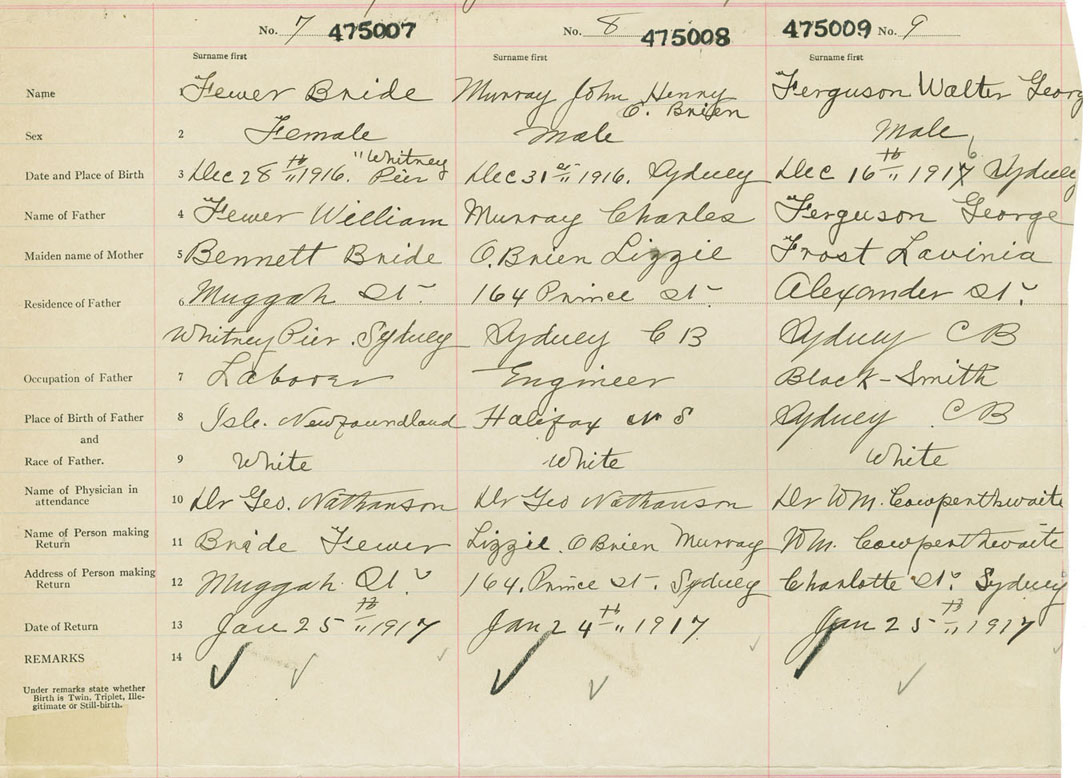 No. 7 475007 No. 8 475008 475009 No. 9
Surname first Surname first Surname first
Name 1 Fewer Bride Murray John Henry Ferguson Walter Georg
O. Brien
Sex 2 Female Male Male
"Whitney 6
Date and Place of Birth 3 Dec 28th 1916. Pier Dec 31st 1916. Sydney Dec 16th 1917 Sydney
Name of Father 4 Fewer William Murray Charles Ferguson George
Maiden name of Mother 5 Bennett Bride O.Brien Lizzie Frost Lavinia
Residence of Father 6 Muggah St 164 Prince St. Alexander St.
Whitney Pier. Sydney Sydney C B Sydney C B
Occupation of Father 7 Laborer Engineer Black-Smith
Place of Birth of Father 8 Isle. Newfoundland Halifax N S Sydney C B
and
Race of Father. 9 White White White
Name of Physician in
attendance 10 Dr Geo. Nathanson Dr Geo Nathanson Dr WM. Cowperthwaite
Name of Person making
Return 11 Bride Fewer Lizzie. OBrien Murray WM. Cowperthwaite
Address of Person making
Return 12 Muggah St. 164. Prince St. Sydney Charlotte St. Sydney
Date of Return 13 Jan 25th 1917 Jan 24th 1917 Jan 25th 1917
REMARKS 14
Under remarks state whether
Birth is Twin, Triplet, Ille-
gitimate or Still-birth.